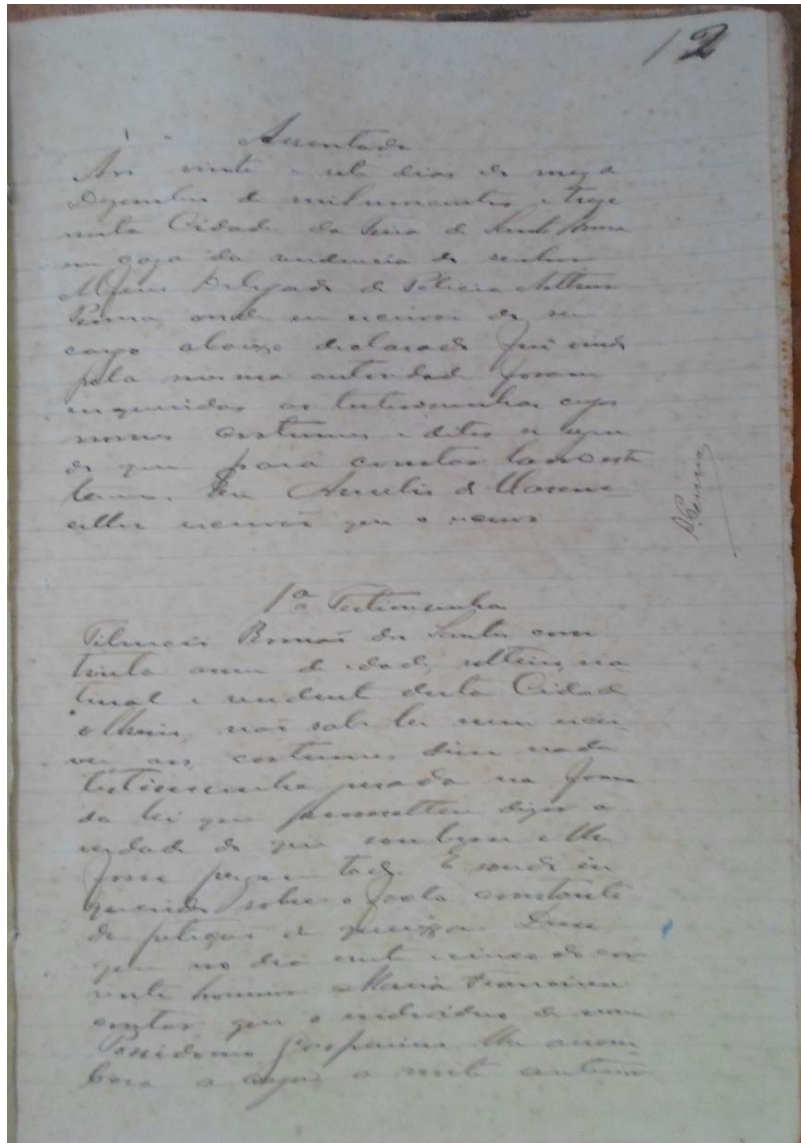 12
Assentada
Aos vinte e sete dias do mez de
Dezembro de mil novecentos e treze
nesta Cidade da Feira de Sant'Anna
em caza da residencia do senhor
Delegado de Policia Arthur
onde eu escrivão de seu
cargo abaixo declarado fui vindo
pela mesma autoridade foram
inqueridas as testemunhas cujos
nomes costumes e ditos se segue
do que para constar lavro este
termo. Eu Aurelio de
escrivão que o escrevi
1ª Testemunha
Romão dos Santos com
trinta annos de idade, solteiro, na
tural e residente desta Cidade
não sabe ler nem escre
ver, aos costumes disse nada
testemunha jurada na forma
da lei que prometteu dizer a
verdade do que soubesse e lhe
fosse perguntado. E sendo in
querido sobre o facto constante
da petição de queixa. Disse
que no dia vinte e cinco do cor
rente Maria Francisca
contou que o individuo de nome
Possidonio lhe arrom
bara a caza a noite